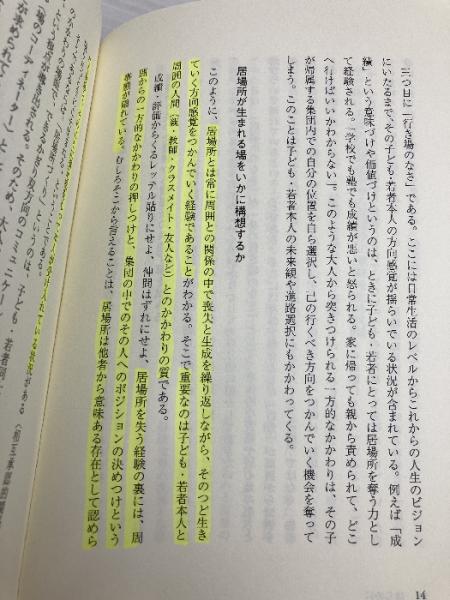 三つ目に「行き場のなさ」である。ここには日常生活のレベルからこれからの人生のビジョン
にいたるまで、その子ども・若者本人の方向感覚が揺らいでいる状況が含まれている。例えば「成
績」という意味づけや価値づけというのは、ときに子ども・若者にとっては居場所を奪う力とし
て経験される。「学校でも塾でも成績が悪いと怒られる。家に帰っても親から責められて、どこ
へ行けばいいかわからない」。このような大人から突きつけられる一方的なかかわりは、その子
が帰属する集団内での自分の位置を自ら選択し、己の行くべき方向をつかんでいく機会を奪って
しまう。このことは子ども・若者本人の未来観や進路選択にもかかわってくる。
居場所が生まれる場をいかに構想するか
このように、居場所とは常に周囲との関係の中で喪失と生成を繰り返しながら、そのつど生き
ていく方向感覚をつかんでいく経験であることがわかる。そこで重要なのは子ども・若者本人と
周囲の人間（親・教師・クラスメイト・友人など）とのかかわりの質である。
成績・評価からくるレッテル貼りにせよ、仲間はずれにせよ、居場所を失う経験の裏には、周
囲からの一方的なかかわりの押しつけと、集団の中でのその人へのポジションの決めつけという
事態が隠れている。むしろそこから言えることは、居場所は他者から意味ある存在として認めら
14